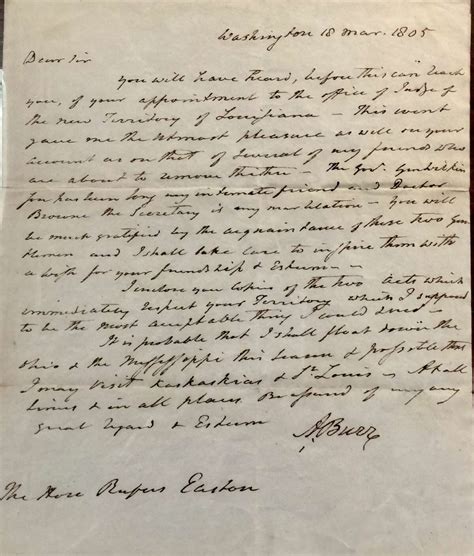 Washington 18 Mar. 1805
Dear Sir
you will have heard, before this can reach
you, of your appointment to the office of Judge of
the new Territory of Louisiana – This event
gave me the utmost pleasure as well on your
account as on that of several of my friends who
are about to remove thither – the Gov. Genl Wilkin
son has been long my intimate friend and Doctor
Browne the Secretary is my near relation – you will
be much gratified by the acquaintance of these two Gen
tlemen and I shall take care to inspire them with
a wish for your friendship & Esteem –
I inclose you Copies of the two Acts which
immediately respect your Territory which I supposed
to be the most acceptable thing I could send –
It is probable that I shall float down the
Ohio & the Mississippi this season & possible that
I may visit Kaskaskias & St. Louis – At all
times & in all places Be assured of my very
great regard & Esteem
A. Burr
The Hon Rufus Easton